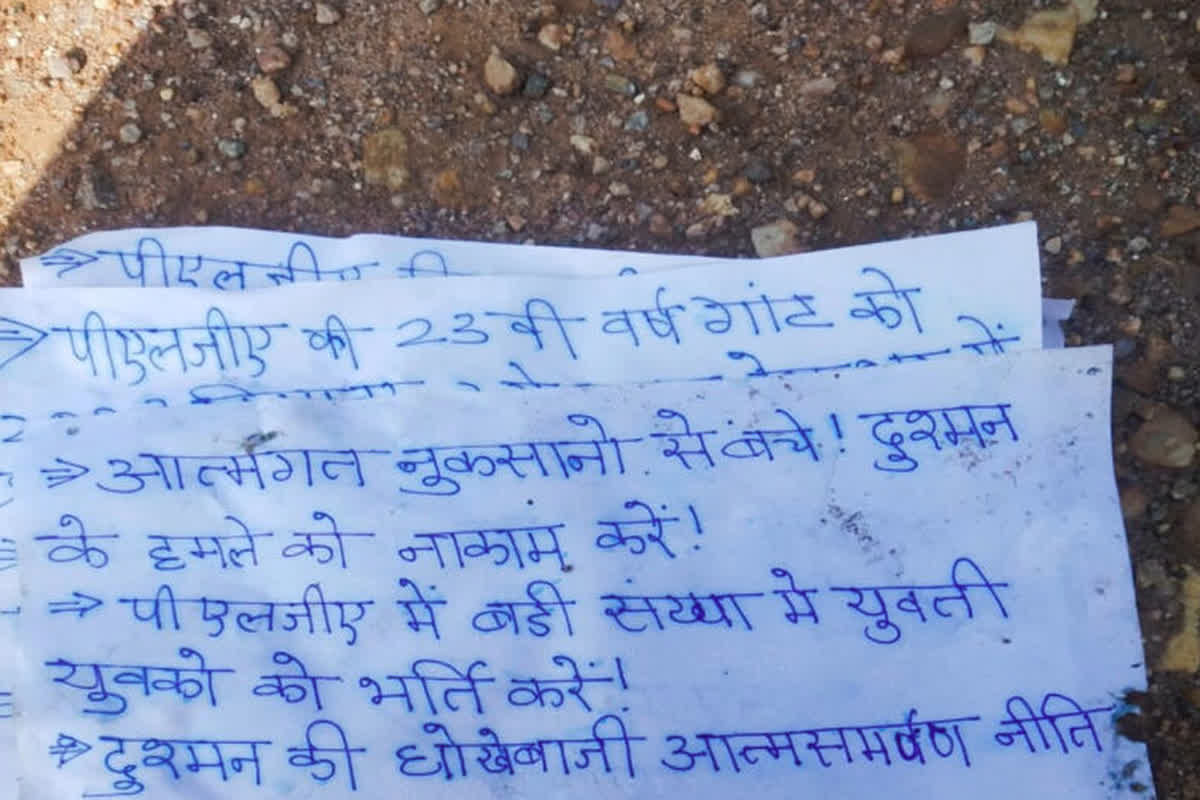 ⇒ पीएलजीए की
⇒ पीएलजीए की 23 वी वर्ष गांठ को
में
⇒ आत्मगत नुकसानो से बचे! दुश्मन
के हमले को नाकाम करें!
⇒ पीएलजीए में बडी संख्या मे युवती
युवको को भर्ति करें!
⇒ दुश्मन की धोखेबाजी आत्मसमर्पण नीति